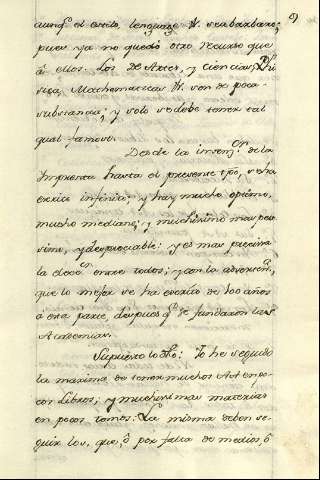 aunq.e el estilo, lenguage &. sea barbaro;
pues ya no quedó otro recurso que
á ellos. Los de Artes, y ciencias, Phi
sica, Mathematicas &. son de poca
substancia; y solo se debe tener tal
qual famoso.
Desde la invenc.on de la
Imprenta hasta el presente tpo, se ha
escrito infinito; y hay mucho optimo,
mucho mediano, y muchisimo mas pes
simo, y despreciable: y es mas precisa
la elecc.on entre todos; y con la advertencia,
que lo mejor se ha escrito de 100 años
á esta parte, despues q.e se fundaron las
Academias.
Supuesto lo dho: Yo he seguido
la maxima de tener muchos Aut en po-
cos Libros; y muchisimas materias
en pocos tomos. La misma deben se-
guir los, que, ó por falta de medios, ó